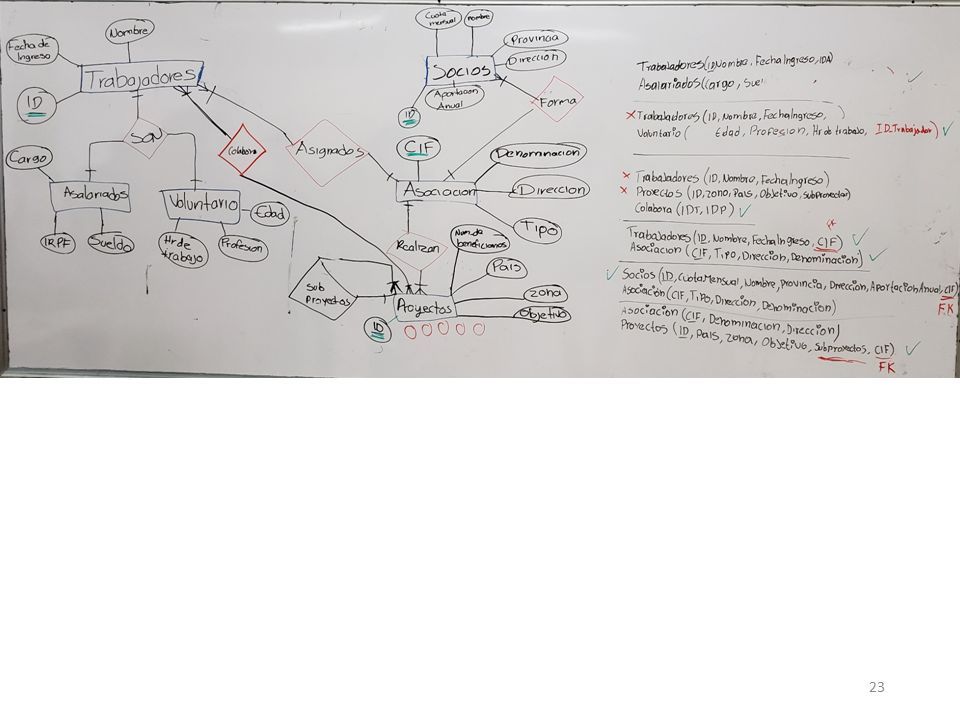 Nombre
Fecha de
Ingreso
Trabajadores
ID
SON
Cargo
Asalariados
IRPF
Sueldo
Voluntario
Edad
Hr de
trabajo
Profesion
Colabora
Asignados
Cuota
mensual
nombre
Provincia
Direccion
Socios
Aportacion
Anual
ID
Forma
CIF
Denominacion
Asociacion
Direccion
Tipo
Realizan
Num.de
beneficiarios
Pais
Zona
Objetivo
Sub
Proyectos
Proyectos
ID
Trabajadores (ID, Nombre, FechaIngreso, IDA)
Asalariados (Cargo, Suel
Trabajadores (ID, Nombre, FechaIngreso, )
Voluntario ( Edad, Profesion, Hr de trabajo, ID.Trabajador)
Trabajadores (ID, Nombre, FechaIngreso)
Proyectos (ID, zona, Pais, Objetivo, subproyectos)
Colabora (IDT, IDP)
FK
Trabajadores (ID, Nombre, FechaIngreso, CIF)
Asociacion (CIF, Tipo, Direccion, Denominacion)
Socios (ID, CuotaMensual, Nombre, Provincia, Direccion, AportacionAnual, CIF)
FK
Asociacion (CIF, Tipo, Direccion, Denominacion)
Asociacion (CIF, Denominacion, Direccion)
Proyectos (ID, Pais, zona, Objetivo, subproyectos, CIF)
FK
23